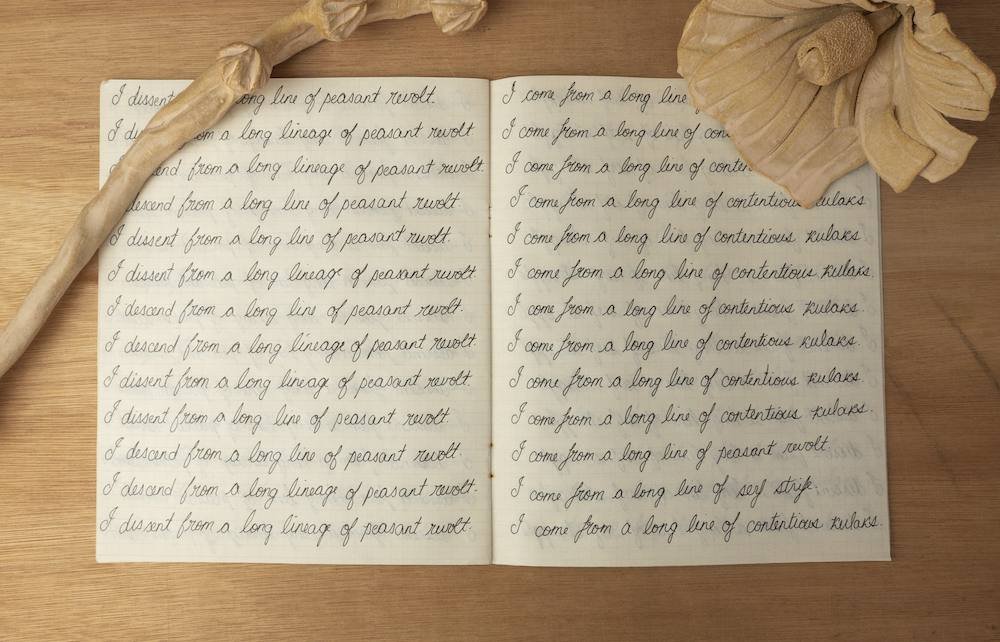 I dissent long line of peasant revolt.
I from a long lineage of peasant revolt
from a long lineage of peasant revolt.
descend from a long line of peasant revolt
I dissent from a long line of peasant revolt.
I dissent from a long lineage of peasant revolt.
I descend from a long line of peasant revolt.
I descend from a long lineage of peasant revolt.
I dissent from a long lineage of peasant revolt.
I dissent from a long line of peasant revolt.
I descend from a long line of peasant revolt.
I descend from a long lineage of peasant revolt.
I dissent from a long lineage of peasant revolt.
I come from a long line
I come from a long line of
I come from a long line of
I come from a long line of contentious kulaks
I come from a long line of contentious kulaks
I come from a long line of contentious kulaks.
I come from a long line of contentious kulaks.
I come from a long line of contentious kulaks.
I come from a long line of contentious kulaks.
I come from a long line of contentious kulaks.
I come from a long line of peasant revolt
I come from a long line of serf strife.
I come from a long line of contentious kulaks.